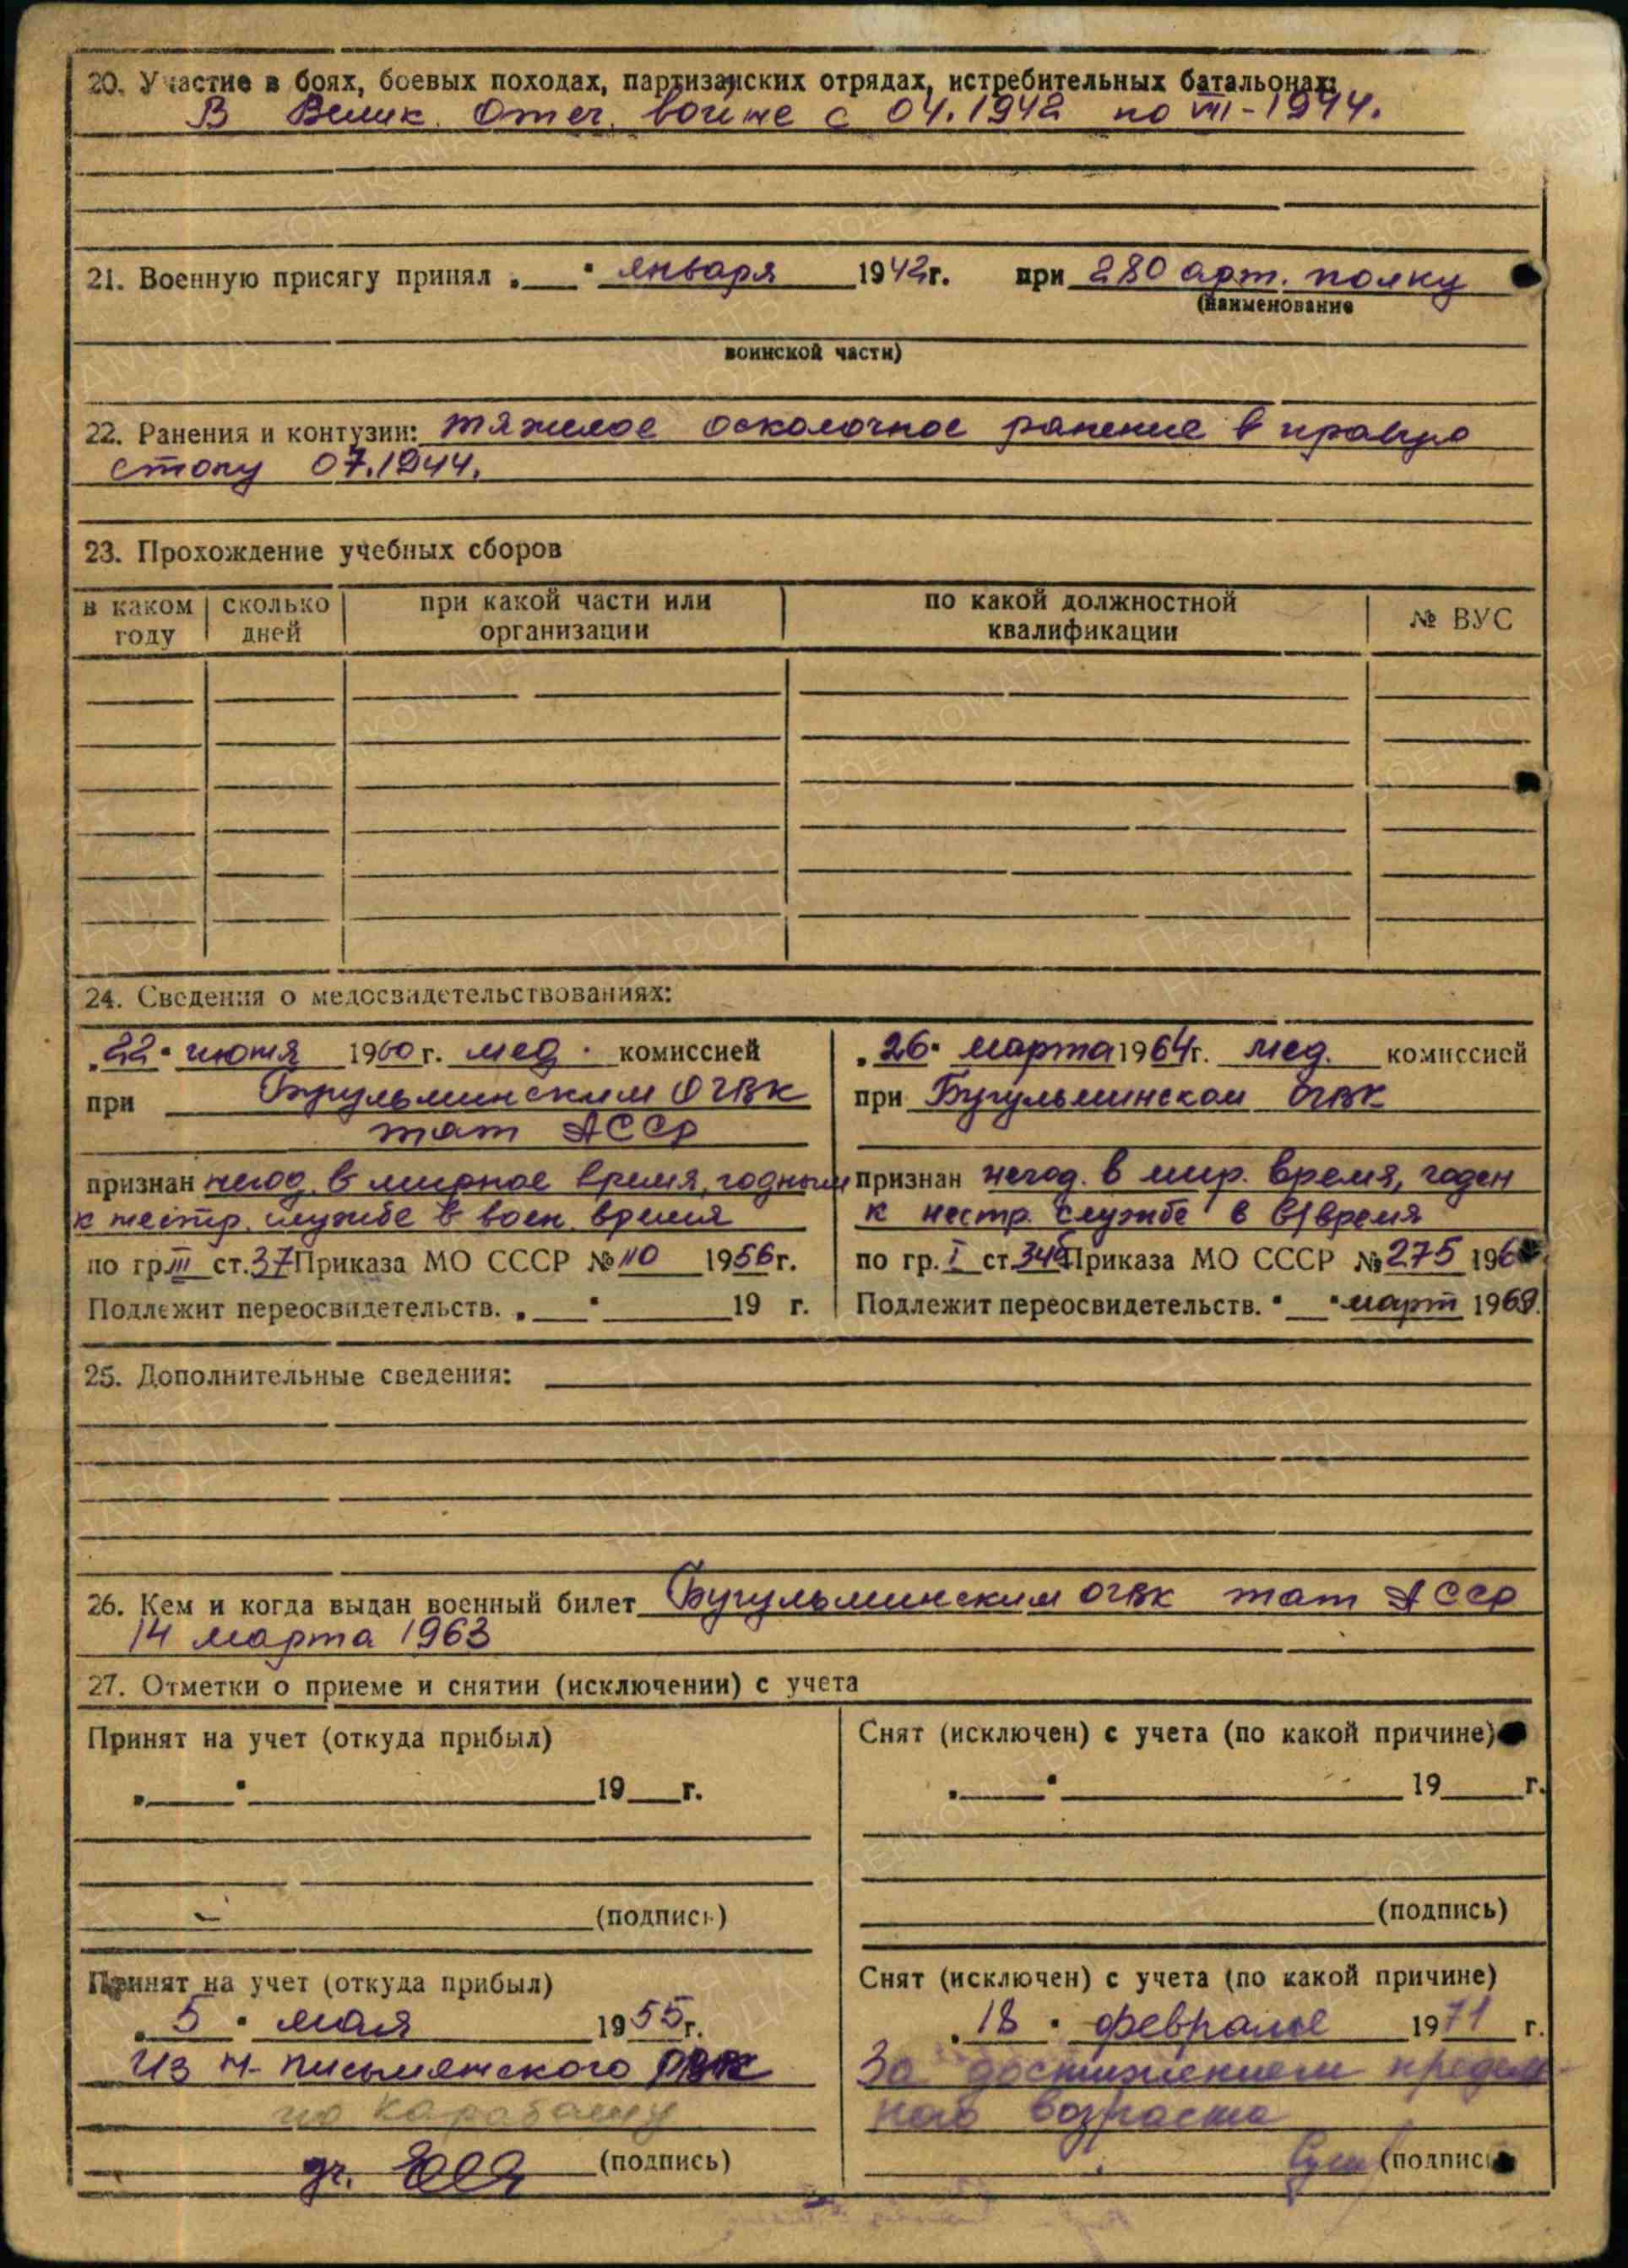 20. Участие в боях, боевых походах, партизанских отрядах, истребительных батальонах:
В Велик. Отеч. войне с 04.1942 по VIII-1944.
21. Военную присягу принял „ " января 1942г. при 280 арт. полку
(наименование
воинской части)
22. Ранения и контузии: тяжелое осколочное ранение в правую
стопу 07.1944.
23. Прохождение учебных сборов
в каком году
сколько дней
при какой части или организации
по какой должностной квалификации
№ ВУС
24. Сведения о медосвидетельствованиях:
„22" июня 1960г. мед. комиссией
при Бугульминским ОГВК
тат АССР
признан негод. в мирное время, годным
к нестр. службе в воен. время
по гр. III ст. 37 Приказа МО СССР № 110 1956г.
Подлежит переосвидетельств. „ " 19 г.
„26" марта 1964г. мед. комиссией
при Бугульминском ОГВК
признан негод. в мир. время, годен
к нестр. службе в в/время
по гр. I ст. Приказа МО СССР № 275 196
Подлежит переосвидетельств. " " март 1969.
25. Дополнительные сведения:
26. Кем и когда выдан военный билет Бугульминским ОГВК тат АССР
14 марта 1963
27. Отметки о приеме и снятии (исключении) с учета
Принят на учет (откуда прибыл)
„ " 19 г.
(подпись)
Снят (исключен) с учета (по какой причине)
„ " 19 г.
(подпись)
Принят на учет (откуда прибыл)
„5" мая 1955г.
из Н-Письмянского РВК
по Карабашу
(подпись)
Снят (исключен) с учета (по какой причине)
„18" февраля 1971 г.
За достижением предель-
ного возраста
(подпись)
ПАМЯТЬ НАРОДА
ВОЕНКОМАТЫ